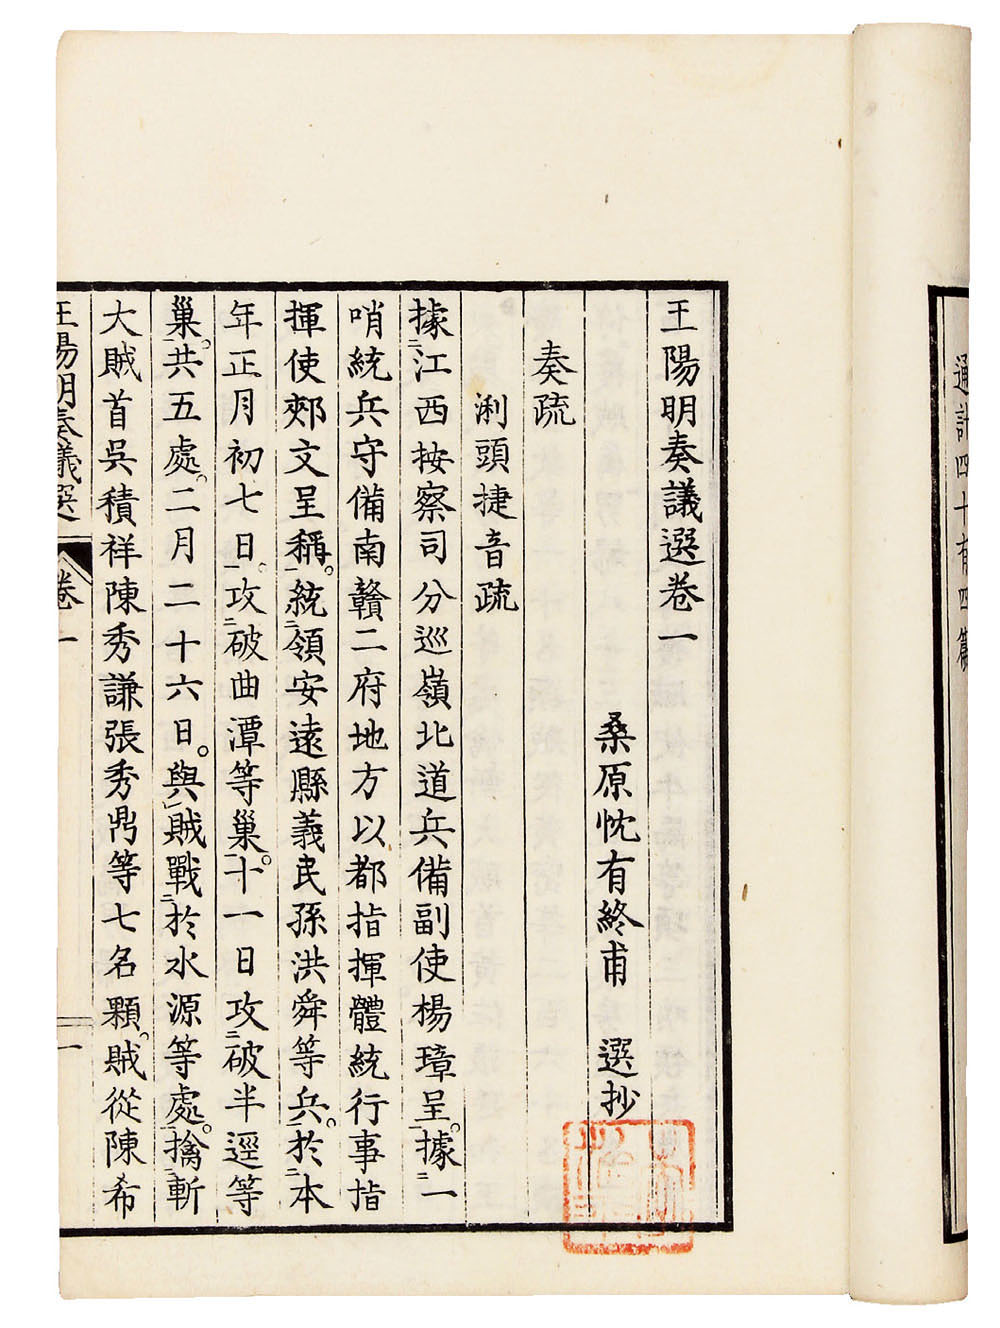 通計四十有四篇
王陽明奏議選卷一
桑原忱有終甫　選抄
奏疏
浰頭捷音疏
據二江西按察司分巡嶺北道兵備副使楊璋呈一。據二一
哨統兵守備南贛二府地方以都指揮體統行事指
揮使郟文呈稱一。統二領安遠縣義民孫洪舜等兵一。於二本
年正月初七日一。攻二破曲潭等巢一。十一日攻二破半逕等
巢一。共五處。二月二十六日。與レ賊戰二於水源等處一。擒二斬
大賊首吳積祥陳秀謙張秀鼎等七名顆一。賊從陳希
王陽明奏議選　卷一　一